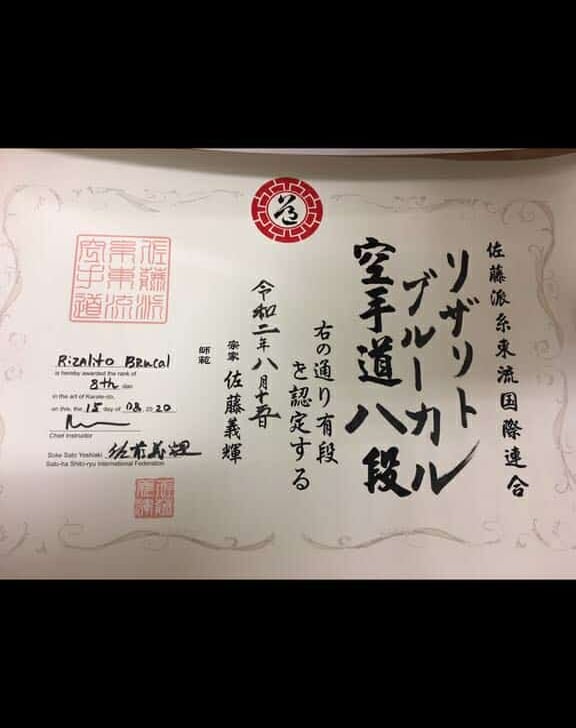 佐藤派糸東流国際連合
リザリト
ブルーカル
空手道八段
右の通り有段
を認定する
令和二年八月十五日
宗家 佐藤義輝
師範
佐藤派
糸東流
空手道
Rizalito Brucal
is hereby awarded the rank of
8th dan
in the art of Karate-do,
on this, the 15 day of 08, 2020
Chief Instructor
Soke Sato Yoshiaki 佐藤義輝
Sato-ha Shito-ryu International Federation